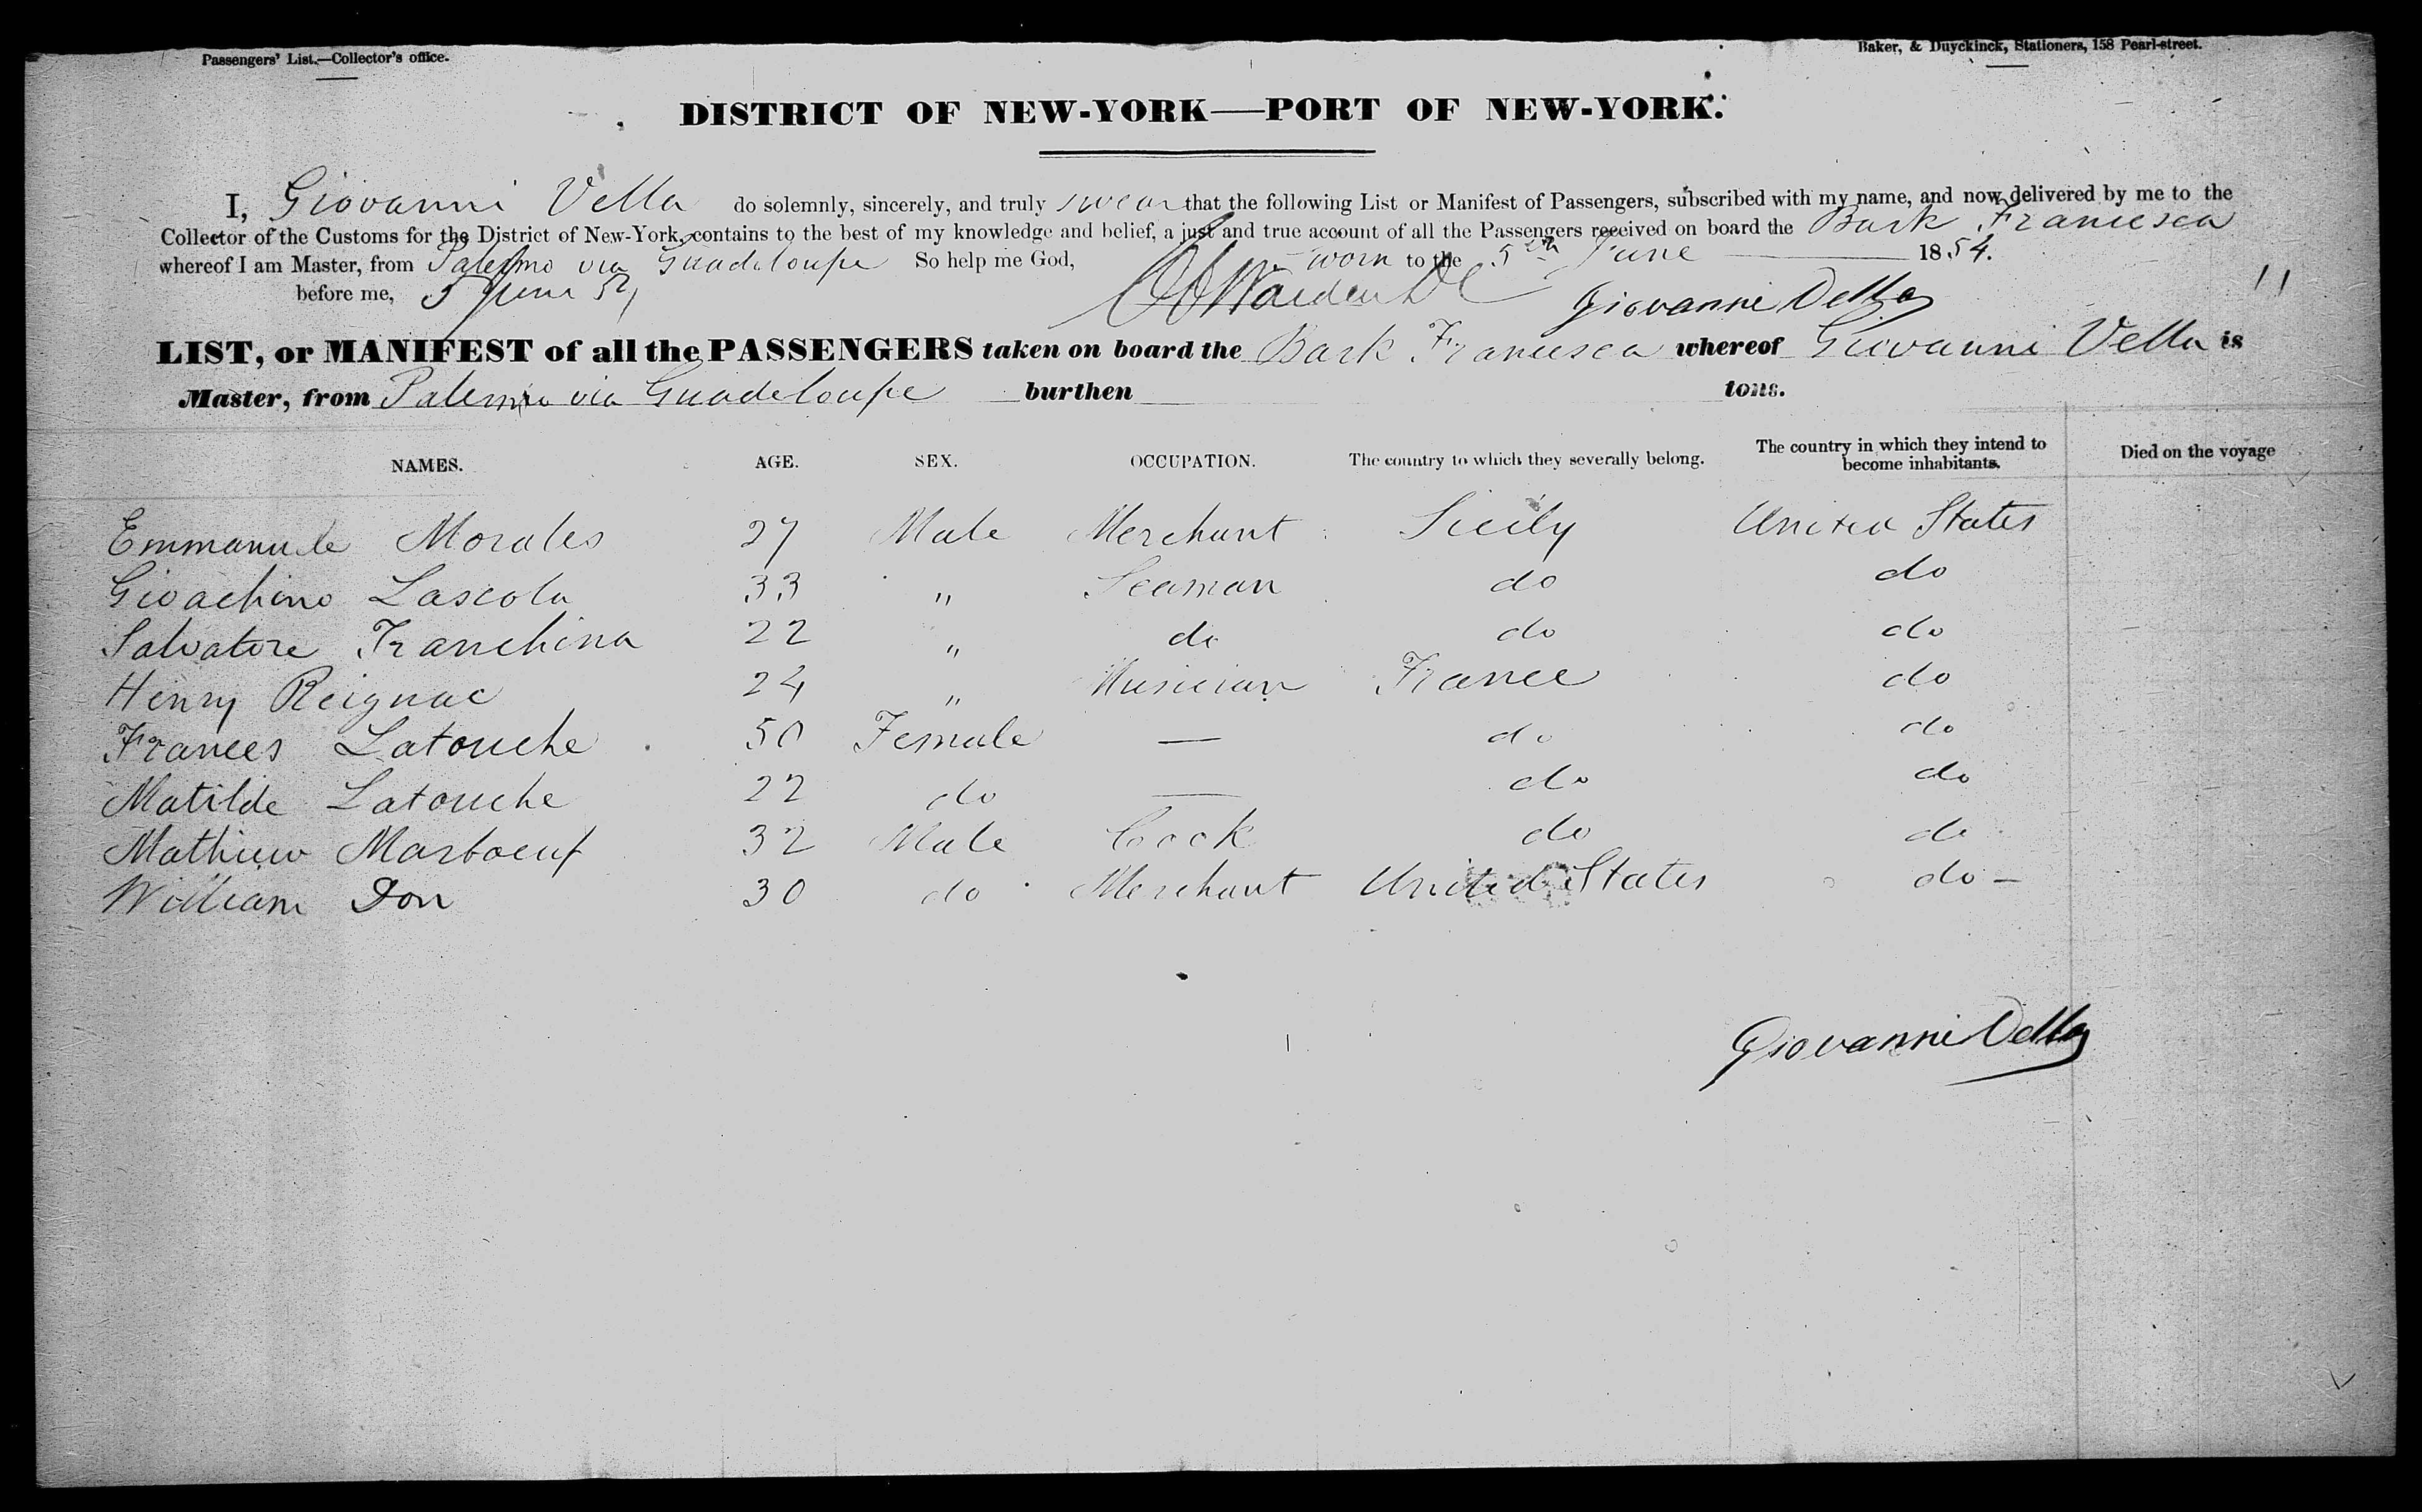 Passengers' List.—Collector's office.
Baker, & Duyckinck, Stationers, 158 Pearl-street.
DISTRICT OF NEW-YORK—PORT OF NEW-YORK.
I, Giovanni Vella do solemnly, sincerely, and truly swear that the following List or Manifest of Passengers, subscribed with my name, and now delivered by me to the
Collector of the Customs for the District of New-York, contains to the best of my knowledge and belief, a just and true account of all the Passengers received on board the Bark Francesca
whereof I am Master, from Palermo via Guadeloupe So help me God, worn to the 5th June 1854.
before me, 5 June 54 Giovanni Vella
11
LIST, or MANIFEST of all the PASSENGERS taken on board the Bark Francesca whereof Giovanni Vella is
Master, from Palermo via Guadeloupe burthen tons.
NAMES. AGE. SEX. OCCUPATION. The country to which they severally belong. The country in which they intend to become inhabitants. Died on the voyage
Emmanuele Morales 27 Male Merchant Sicily United States
Gioachino Lascola 33 " Seaman do do
Salvatore Tranchina 22 " do do do
Henry Reignac 24 " Musician France do
Frances Latouche 50 Female — do do
Matilde Latouche 22 do — do do
Mathieu Marboeuf 32 Male Cook do do
William Don 30 do Merchant United States do —
Giovanni Vella